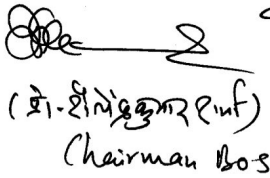 (प्रो. शैलेन्द्रकुमार शर्मा)
Chairman BoS